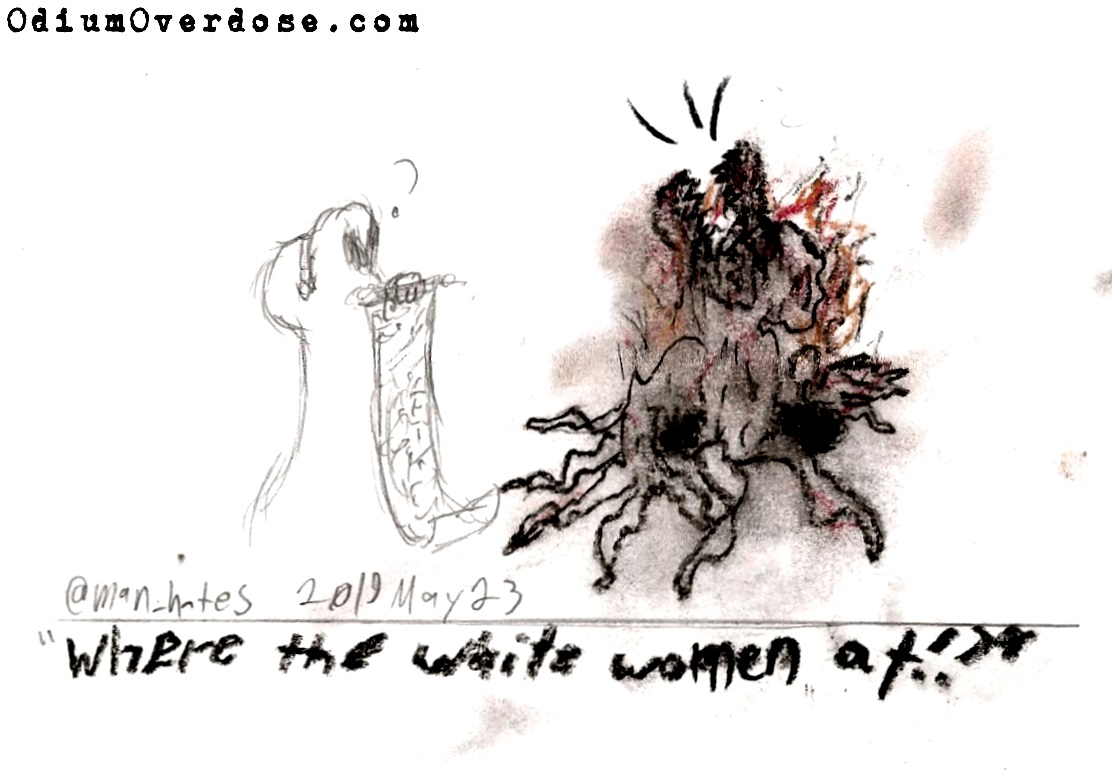 OdiumOverdose.com
?
@man_hates 2019 May 23
"Where the white women at!?"